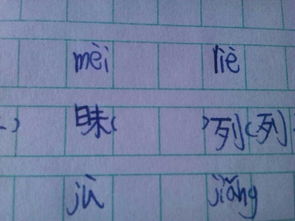 mèi liè
) 昧( )列(列
jù jiǎng